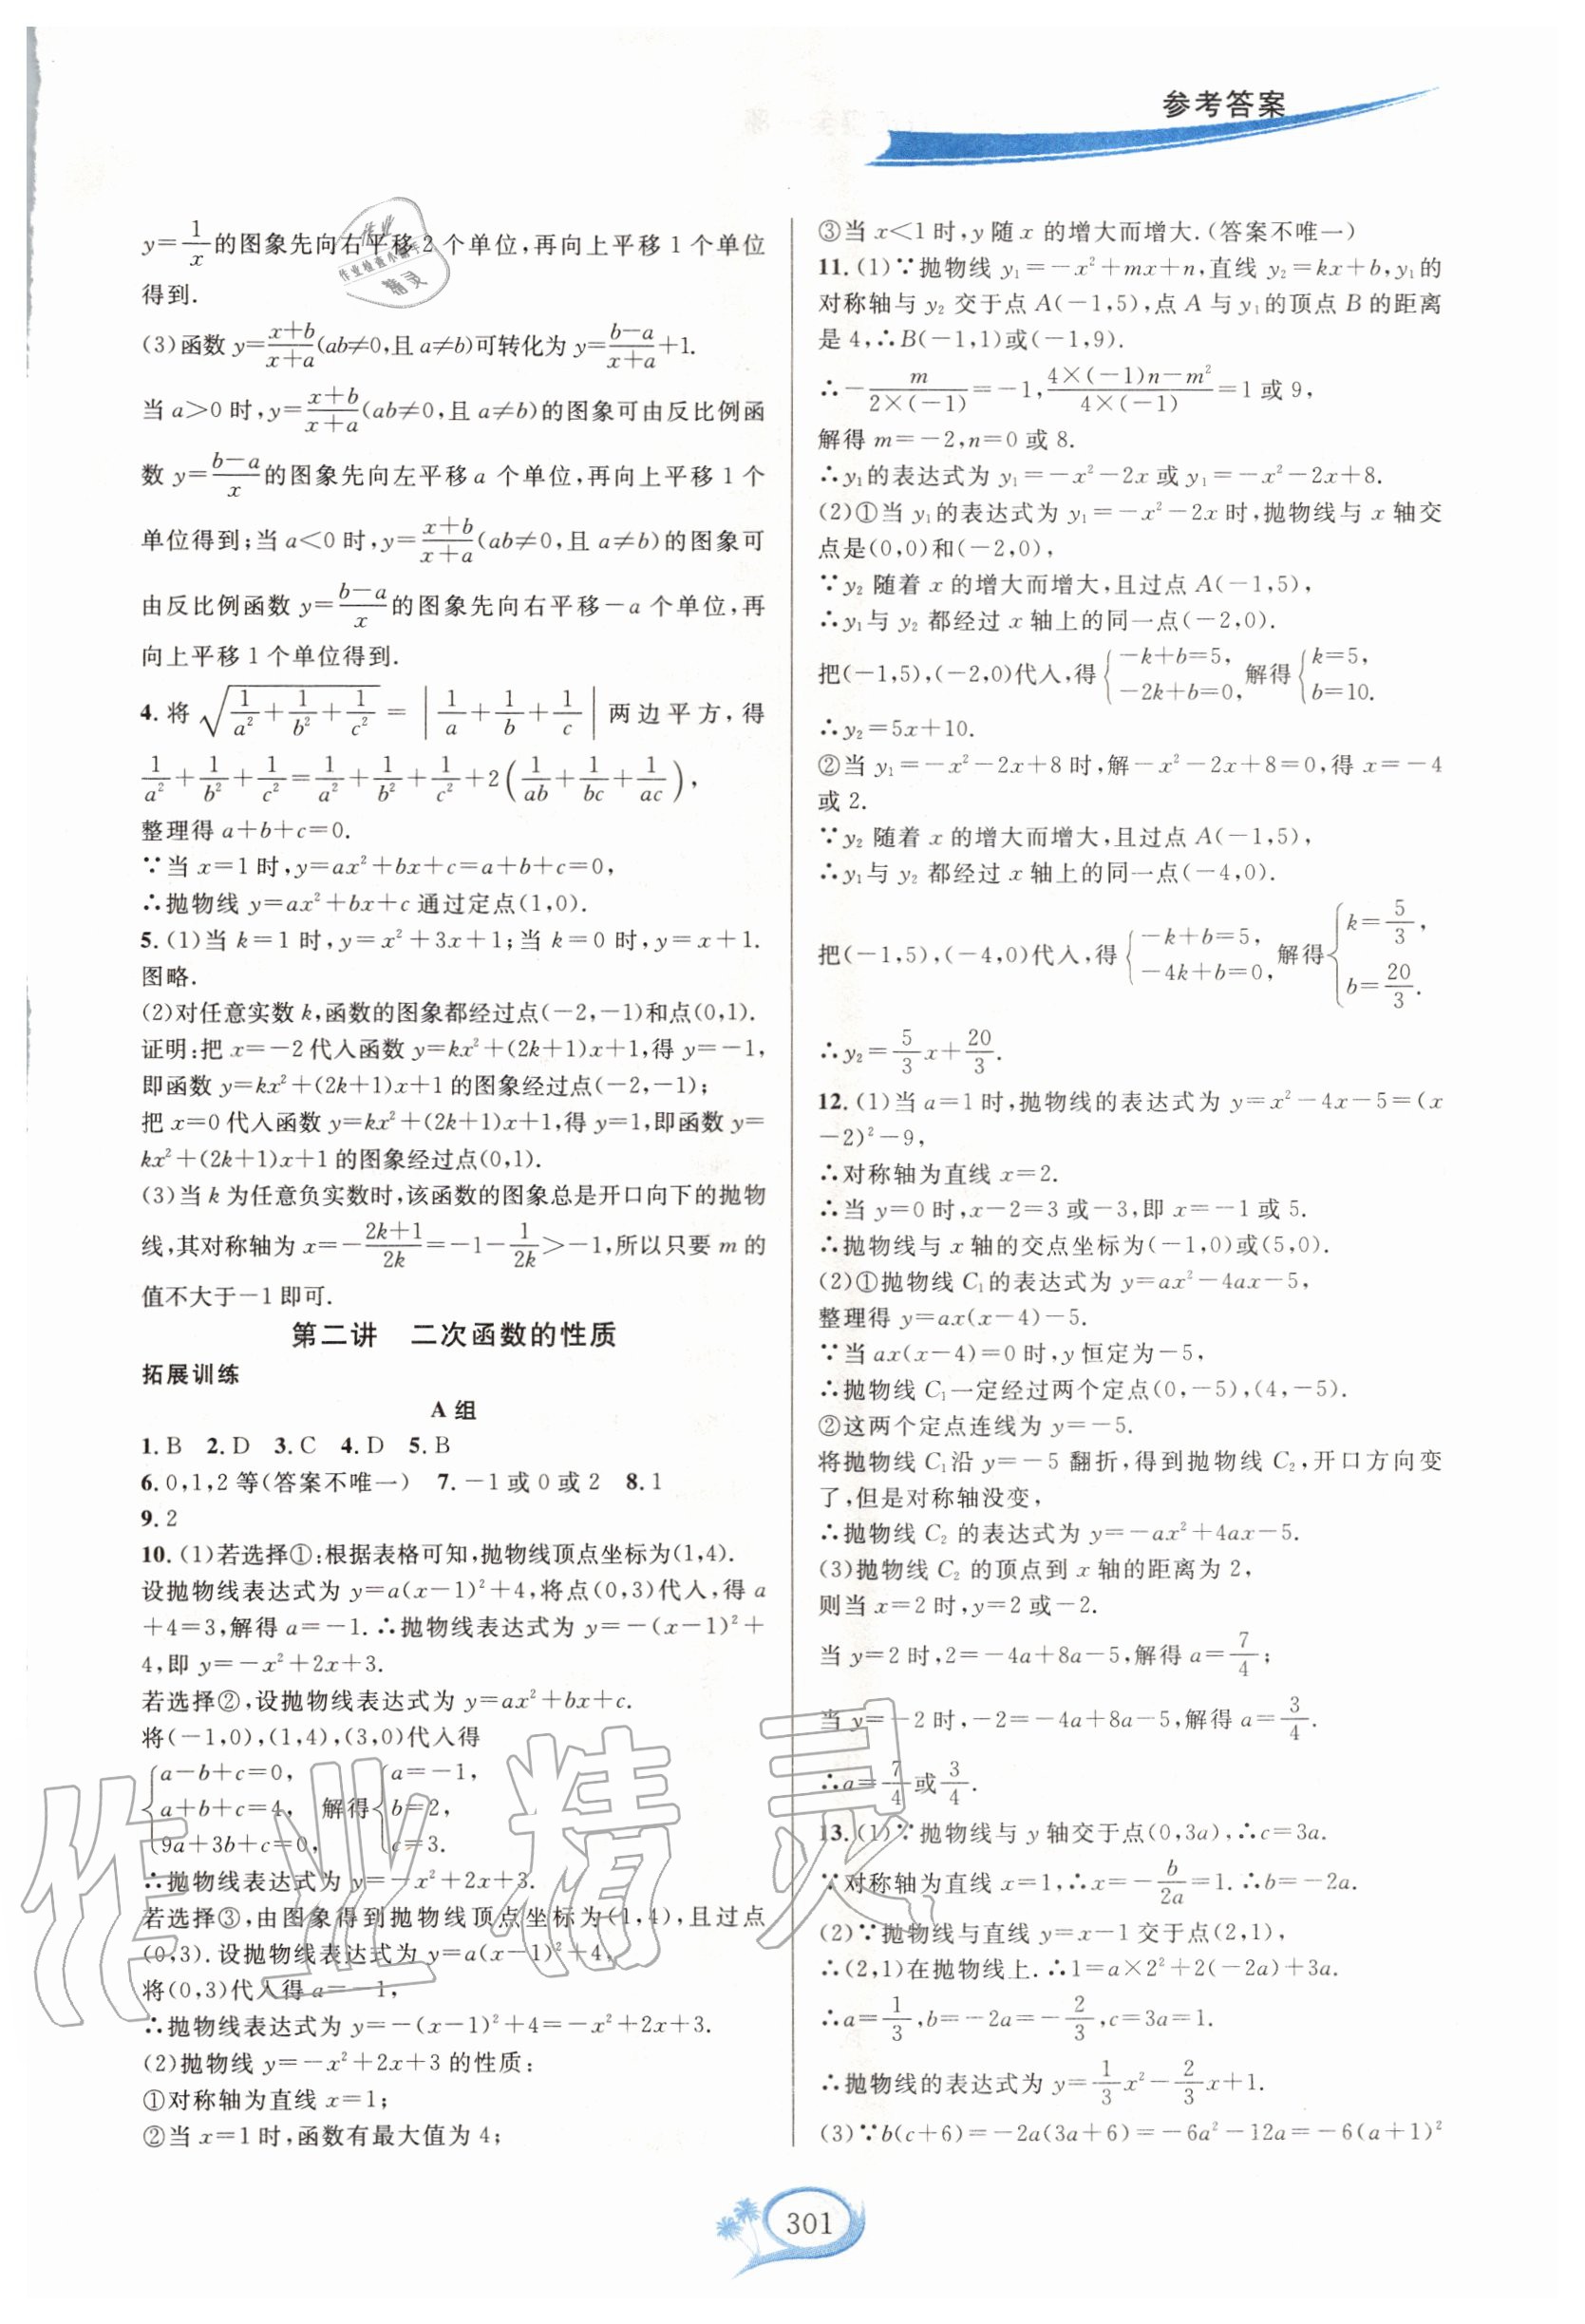 参考答案
y=1/x的图象先向右平移2个单位,再向上平移1个单位
得到.
(3)函数 y=(x+b)/(x+a)(ab≠0,且a≠b)可转化为 y=(b-a)/(x+a)+1.
当 a>0 时,y=(x+b)/(x+a)(ab≠0,且 a≠b)的图象可由反比例函
数 y=(b-a)/x的图象先向左平移 a 个单位,再向上平移 1 个
单位得到;当 a<0 时,y=(x+b)/(x+a)(ab≠0,且 a≠b)的图象可
由反比例函数 y=(b-a)/x的图象先向右平移-a 个单位,再
向上平移 1 个单位得到.
4. 将 √(1/a²+1/b²+1/c²) = |1/a+1/b+1/c| 两边平方,得
1/a²+1/b²+1/c²=1/a²+1/b²+1/c²+2(1/ab+1/bc+1/ac),
整理得 a+b+c=0.
∵当 x=1 时,y=ax²+bx+c=a+b+c=0,
∴抛物线 y=ax²+bx+c 通过定点(1,0).
5. (1)当 k=1 时,y=x²+3x+1;当 k=0 时,y=x+1.
图略.
(2)对任意实数 k,函数的图象都经过点(-2,-1)和点(0,1).
证明:把 x=-2 代入函数 y=kx²+(2k+1)x+1,得 y=-1,
即函数 y=kx²+(2k+1)x+1 的图象经过点(-2,-1);
把 x=0 代入函数 y=kx²+(2k+1)x+1,得 y=1,即函数 y=
kx²+(2k+1)x+1 的图象经过点(0,1).
(3)当 k 为任意负实数时,该函数的图象总是开口向下的抛物
线,其对称轴为 x=-(2k+1)/2k=-1-1/2k>-1,所以只要 m 的
值不大于-1 即可.
第二讲 二次函数的性质
拓展训练
A 组
1. B 2. D 3. C 4. D 5. B
6. 0,1,2 等(答案不唯一) 7. -1 或 0 或 2 8. 1
9. 2
10. (1)若选择①:根据表格可知,抛物线顶点坐标为(1,4).
设抛物线表达式为 y=a(x-1)²+4,将点(0,3)代入,得 a
+4=3,解得 a=-1. ∴抛物线表达式为 y=-(x-1)²+
4,即 y=-x²+2x+3.
若选择②,设抛物线表达式为 y=ax²+bx+c.
将(-1,0),(1,4),(3,0)代入得
{a-b+c=0, {a=-1,
a+b+c=4, 解得 b=2,
9a+3b+c=0, c=3.
∴抛物线表达式为 y=-x²+2x+3.
若选择③,由图象得到抛物线顶点坐标为(1,4),且过点
(0,3).设抛物线表达式为 y=a(x-1)²+4,
将(0,3)代入得 a=-1,
∴抛物线表达式为 y=-(x-1)²+4=-x²+2x+3.
(2)抛物线 y=-x²+2x+3 的性质:
①对称轴为直线 x=1;
②当 x=1 时,函数有最大值为 4;
③当 x<1 时,y 随 x 的增大而增大.(答案不唯一)
11. (1)∵抛物线 y₁=-x²+mx+n,直线 y₂=kx+b,y₁的
对称轴与 y₂ 交于点 A(-1,5),点 A 与 y₁的顶点 B 的距离
是 4,∴B(-1,1)或(-1,9).
∴-m/(2×(-1))=-1,(4×(-1)n-m²)/(4×(-1))=1 或 9,
解得 m=-2,n=0 或 8.
∴y₁的表达式为 y₁=-x²-2x 或 y₁=-x²-2x+8.
(2)①当 y₁的表达式为 y₁=-x²-2x 时,抛物线与 x 轴交
点是(0,0)和(-2,0),
∵y₂ 随着 x 的增大而增大,且过点 A(-1,5),
∴y₁与 y₂ 都经过 x 轴上的同一点(-2,0).
把(-1,5),(-2,0)代入,得{-k+b=5, -2k+b=0,解得{k=5, b=10.
∴y₂=5x+10.
②当 y₁=-x²-2x+8 时,解-x²-2x+8=0,得 x=-4
或 2.
∵y₂ 随着 x 的增大而增大,且过点 A(-1,5),
∴y₁与 y₂ 都经过 x 轴上的同一点(-4,0).
把(-1,5),(-4,0)代入,得{-k+b=5, -4k+b=0,解得{k=5/3, b=20/3.
∴y₂=5/3x+20/3.
12. (1)当 a=1 时,抛物线的表达式为 y=x²-4x-5=(x
-2)²-9,
∴对称轴为直线 x=2.
∴当 y=0 时,x-2=3 或-3,即 x=-1 或 5.
∴抛物线与 x 轴的交点坐标为(-1,0)或(5,0).
(2)①抛物线 C₁的表达式为 y=ax²-4ax-5,
整理得 y=ax(x-4)-5.
∵当 ax(x-4)=0 时,y 恒定为-5,
∴抛物线 C₁一定经过两个定点(0,-5),(4,-5).
②这两个定点连线为 y=-5.
将抛物线 C₁沿 y=-5 翻折,得到抛物线 C₂,开口方向变
了,但是对称轴没变,
∴抛物线 C₂ 的表达式为 y=-ax²+4ax-5.
(3)抛物线 C₂ 的顶点到 x 轴的距离为 2,
则当 x=2 时,y=2 或-2.
当 y=2 时,2=-4a+8a-5,解得 a=7/4;
当 y=-2 时,-2=-4a+8a-5,解得 a=3/4.
∴a=7/4或3/4.
13. (1)∵抛物线与 y 轴交于点(0,3a),∴c=3a.
∵对称轴为直线 x=1,∴x=-b/2a=1. ∴b=-2a.
(2)∵抛物线与直线 y=x-1 交于点(2,1),
∴(2,1)在抛物线上. ∴1=a×2²+2(-2a)+3a.
∴a=1/3,b=-2a=-2/3,c=3a=1.
∴抛物线的表达式为 y=1/3x²-2/3x+1.
(3)∵b(c+6)=-2a(3a+6)=-6a²-12a=-6(a+1)²
301
作业精灵